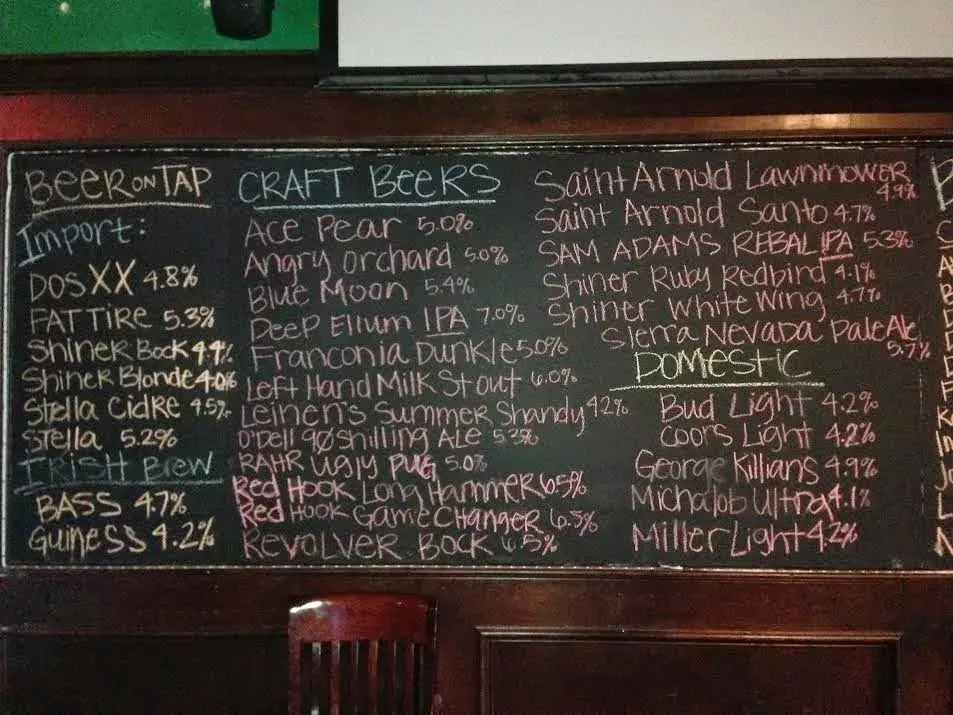 BEER ON TAP
Import:
DOS XX 4.8%
FAT TIRE 5.3%
Shiner Bock 4.4%
Shiner Blonde 4.0%
Stella Cidre 4.5%
Stella 5.2%
IRISH Brew
BASS 4.7%
Guiness 4.2%
CRAFT BeeRS
Ace Pear 5.0%
Angry orchard 5.0%
Blue Moon 5.4%
Deep Ellum IPA 7.0%
Franconia Dunkle 5.0%
Left Hand Milk Stout 6.0%
Leinen's Summer Shandy 4.2%
O'Dell 90 Shilling Ale 5.3%
RAHR Ugly Pug 5.0%
Red Hook Long Hammer 6.5%
Red Hook Game Changer 6.5%
Revolver Bock 6.5%
Saint Arnold Lawnmower
4.9%
Saint Arnold Santo 4.7%
SAM ADAMS REBAL IPA 5.3%
Shiner Ruby Redbird 4.1%
Shiner White Wing 4.7%
Sierra Nevada Pale Ale
5.7%
DOMESTIC
Bud Light 4.2%
Coors Light 4.2%
George Killians 4.9%
Michalob Ultra 4.1%
Miller Light 4.2%